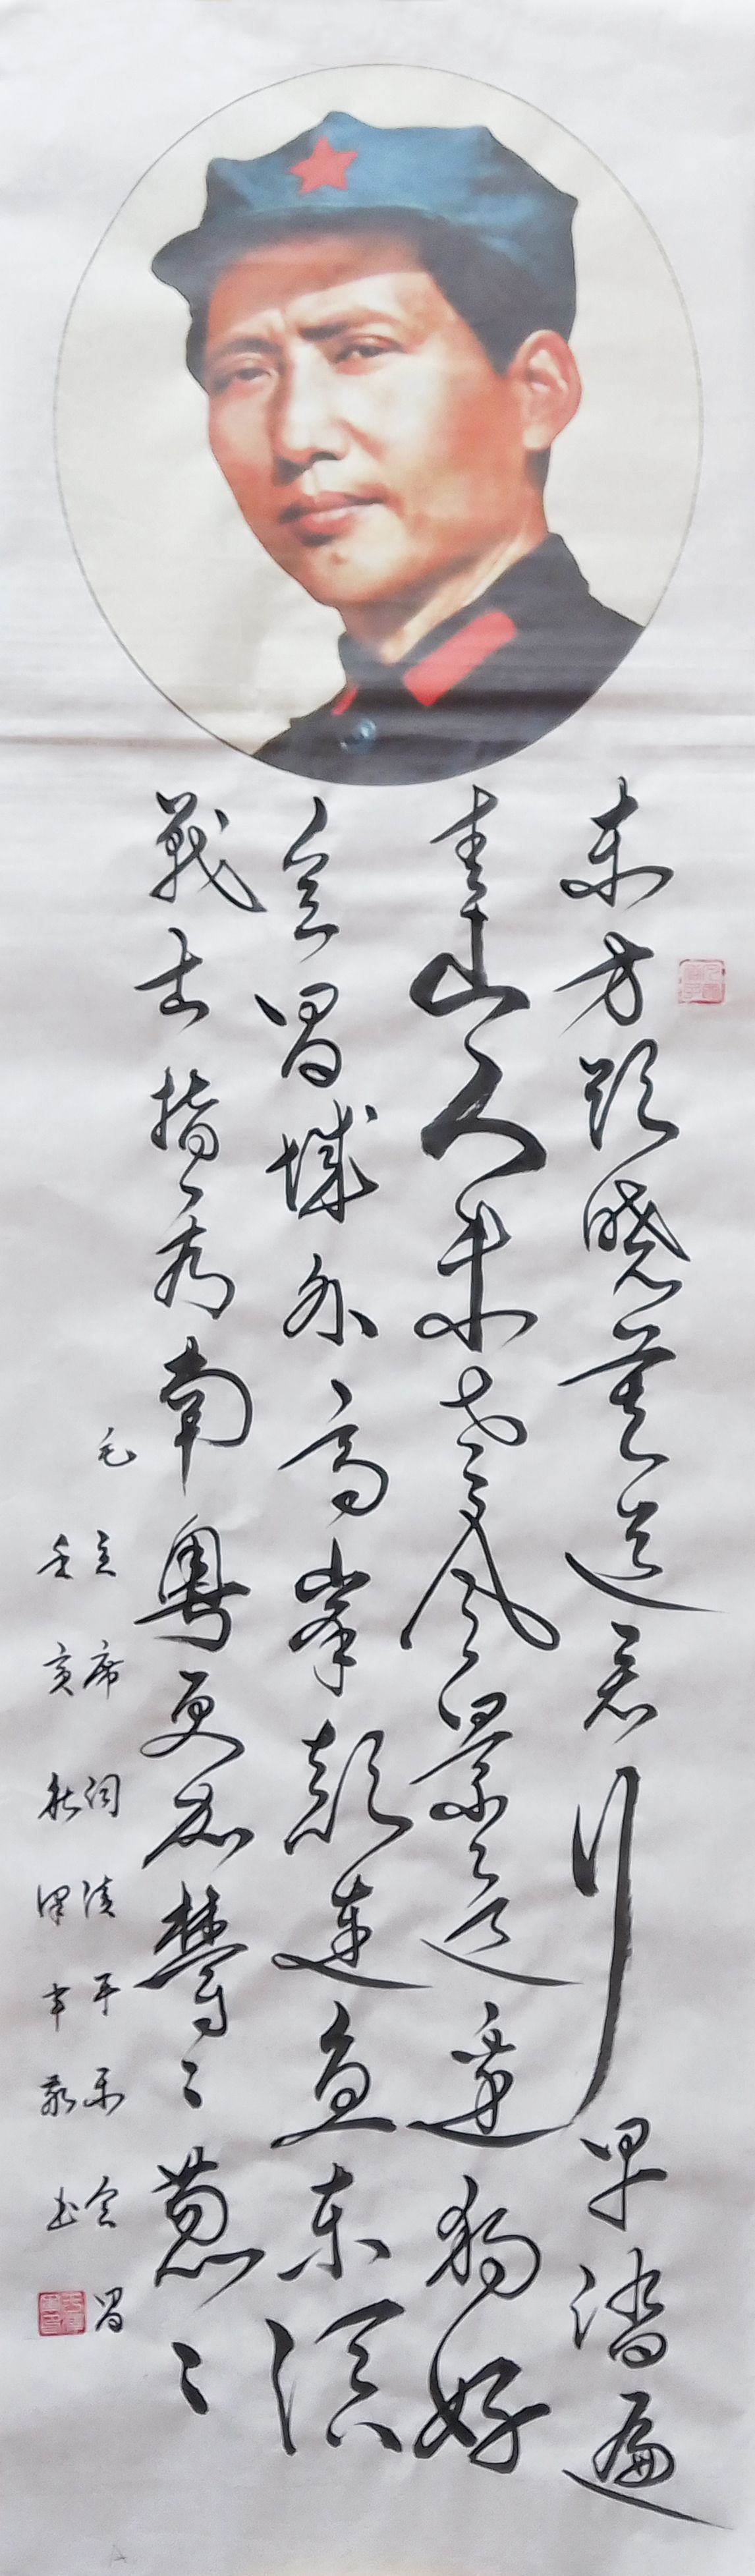 东方欲晓莫道君行早踏遍
青山人未老风景这边独好
会昌城外高峯颠连直东溟
战士指看南粤更加鬱々葱々
毛主席词清平乐会昌
壬寅秋 敬书